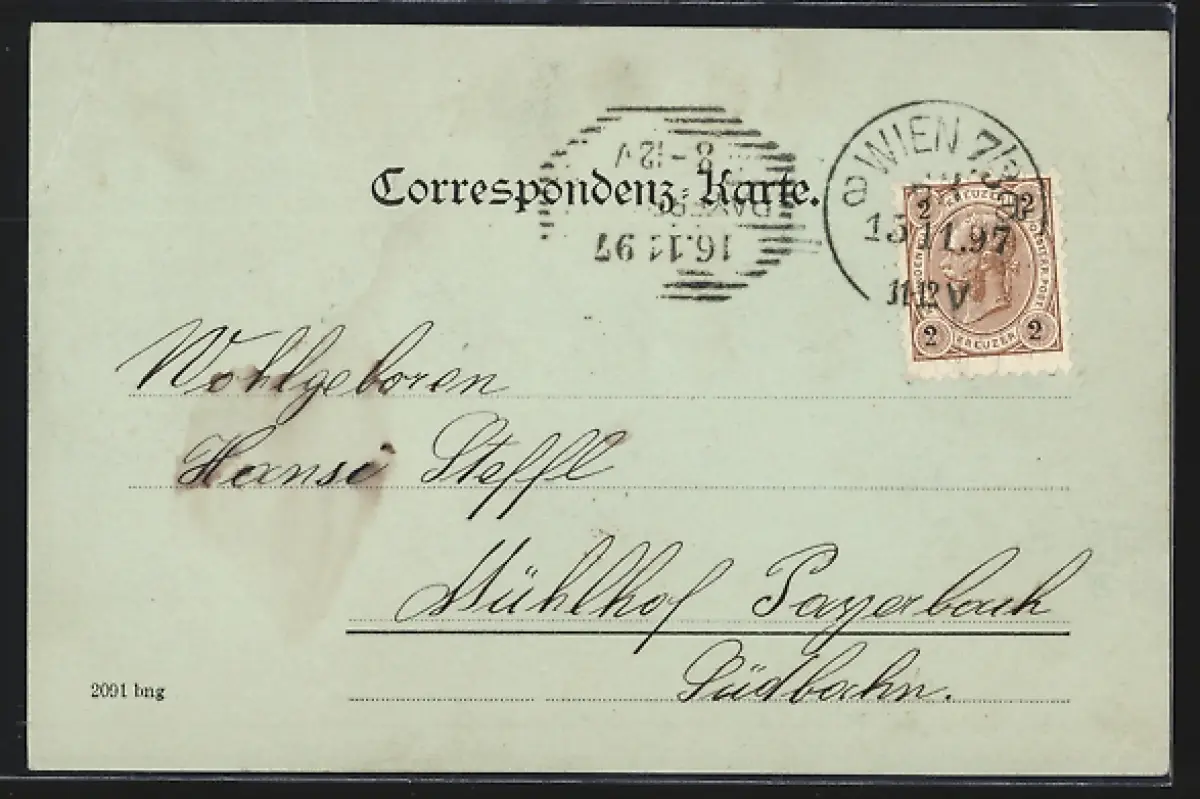 Correspondenz-Karte.
WIEN 7/
15 11.97
11-12 V
8-12 V
16.11 97
2 KREUZER 2
2 KREUZER 2
Wohlgeboren
Hansi Steffl
Mühlhof Payerbach
Südbahn.
2091 bng